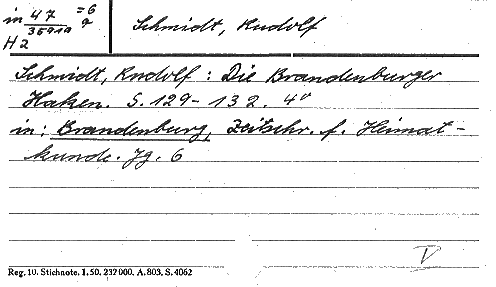 in 47 = 6
35919 a
H2
Schmidt, Rudolf
Schmidt, Rudolf : Die Brandenburger
Haken. S. 129-132. 4°
in: Brandenburg, Zeitschr. f. Heimat-
kunde. Jg. 6
V
Reg. 10. Stichnote. 1. 50. 232 000. A. 803. S. 4062